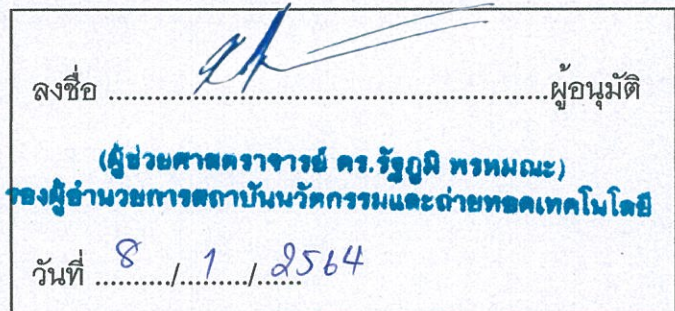 ลงชื่อ ........................................................ผู้อนุมัติ
(ผู้ช่วยศาสตราจารย์ ดร.รัฐภูมิ พรหมณะ)
รองผู้อำนวยการสถาบันนวัตกรรมและถ่ายทอดเทคโนโลยี
วันที่ 8 / 1 / 2564